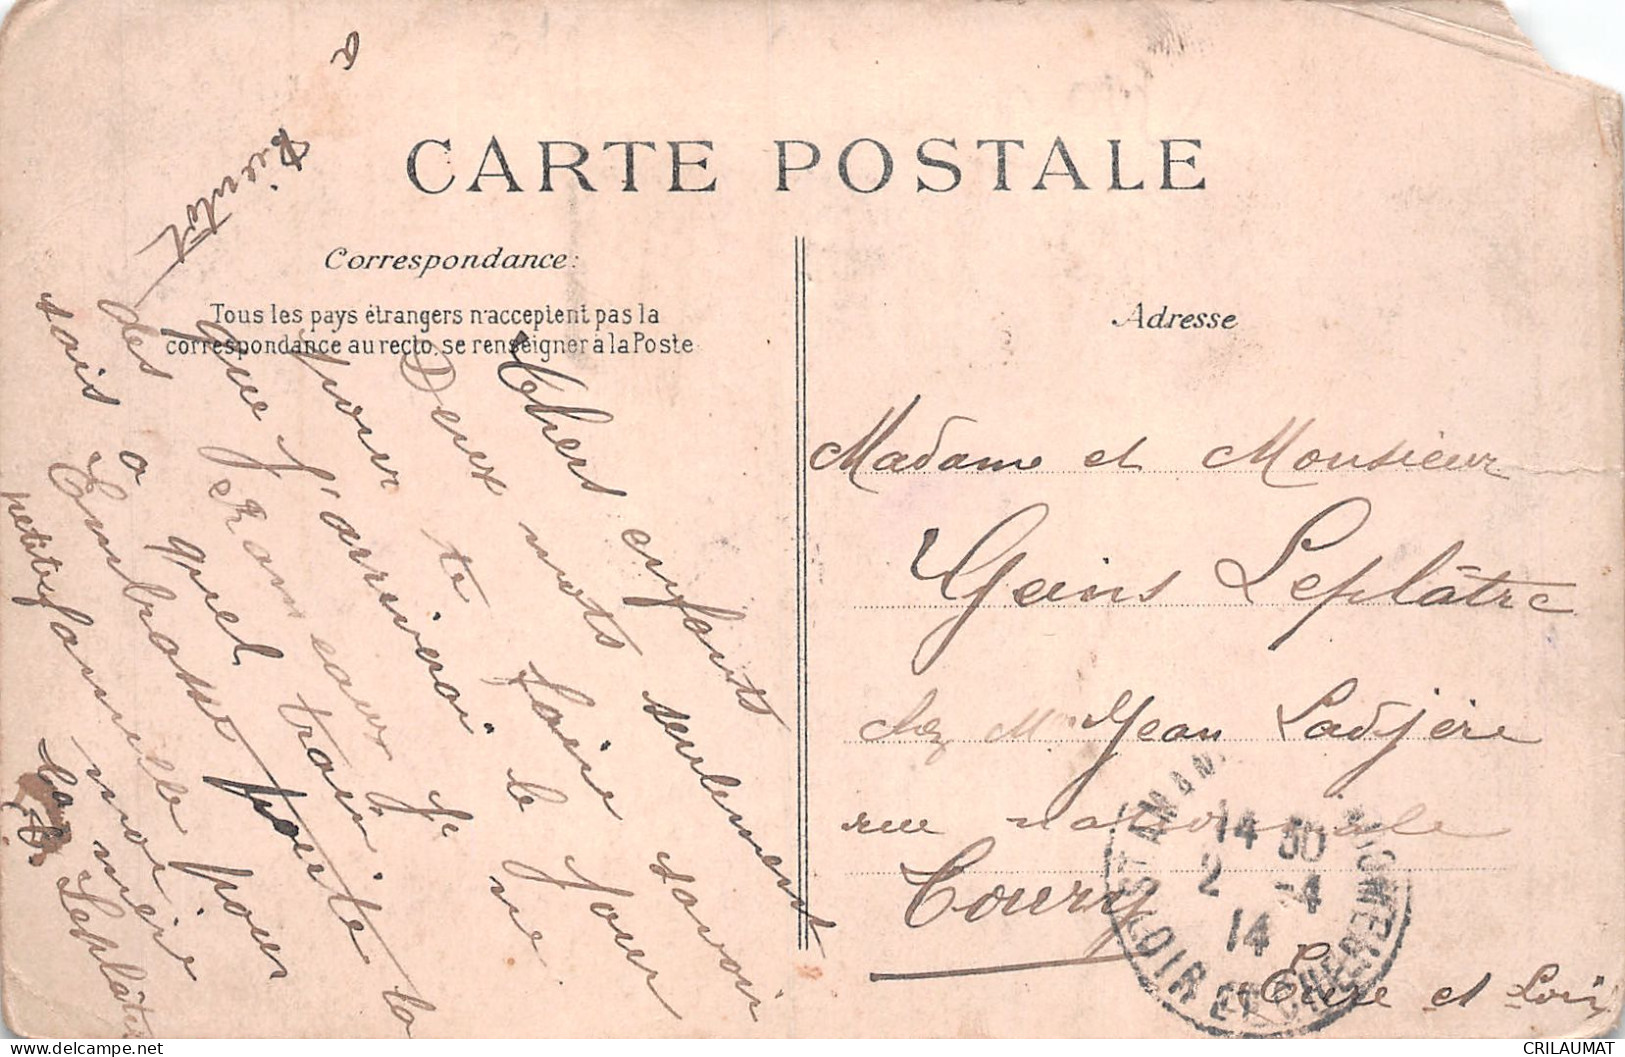 CARTE POSTALE
Correspondance:
Tous les pays étrangers n'acceptent pas la
correspondance au recto, se renseigner à la Poste
Adresse
Chers enfants
Deux mots seulement
pour te faire savoir
que j'arriverai le jour
des Rameaux je ne
sais a quel train
Embrasse la
petite famille pour
moi
ta mère
Leplâtre
a
Bientôt
Madame et Monsieur
Geins Leplâtre
chez Mr Jean Ladjère
rue nationale
Toury
Eure et Loir
ST AMAN
14 30
2 -4
14
LOIR ET CHER
CRILAUMAT